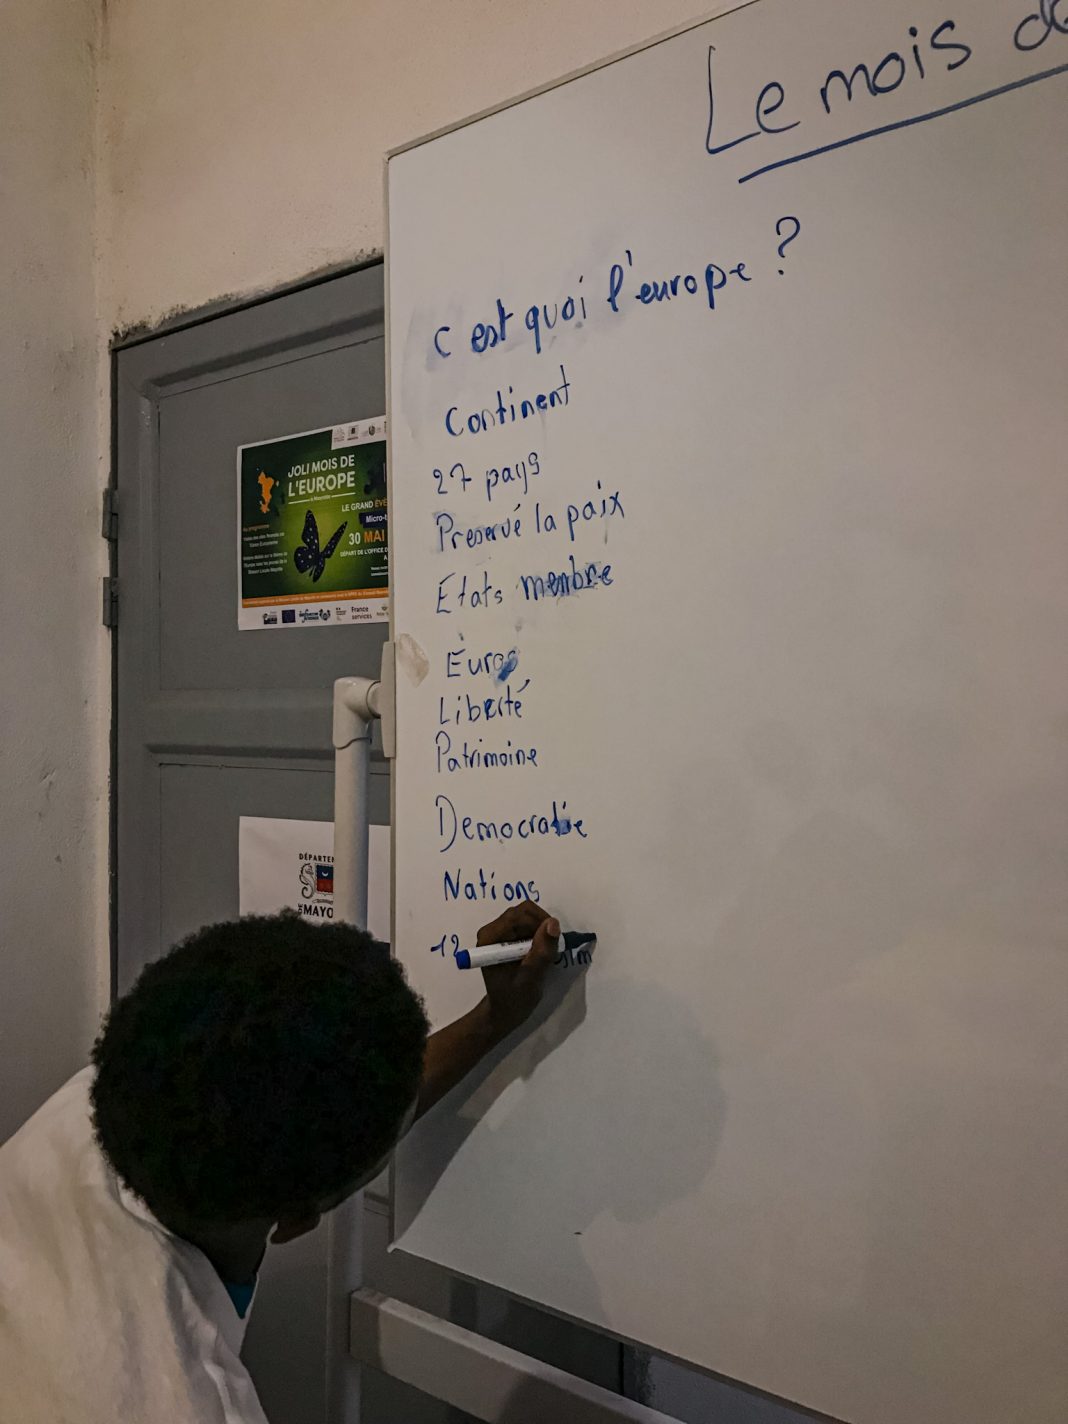 Le mois de
C est quoi l'europe ?
Continent
27 pays
Preservé la paix
Etats membre
Euros
Liberté
Patrimoine
Democratie
Nations
12
JOLI MOIS DE
L'EUROPE
à Mayotte
LE GRAND ÉVÉ
30 MAI
DÉPART DE L'OFFICE D
Au programme
France
services
DÉPARTE
MAYO